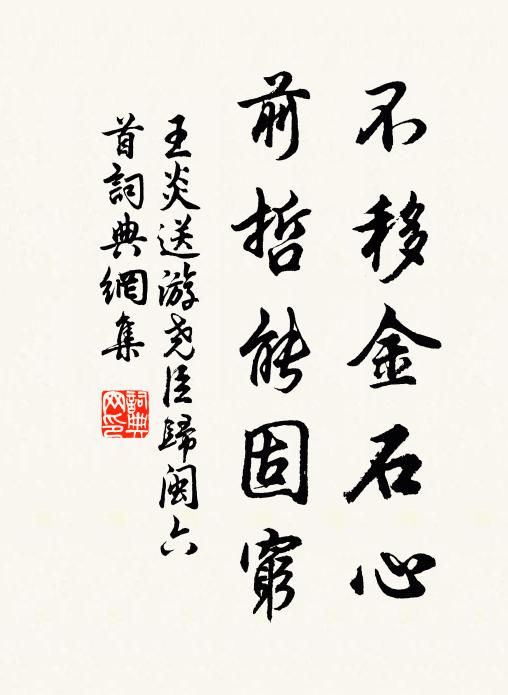 不移金石心
前哲能固窮
王炎送游尧臣歸闽六
首詞典網集
詞典
网印